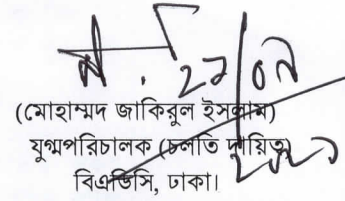 ২১/০৭
২০২১
(মোহাম্মদ জাকিরুল ইসলাম)
যুগ্মপরিচালক (চলতি দায়িত্ব)
বিএডিসি, ঢাকা।